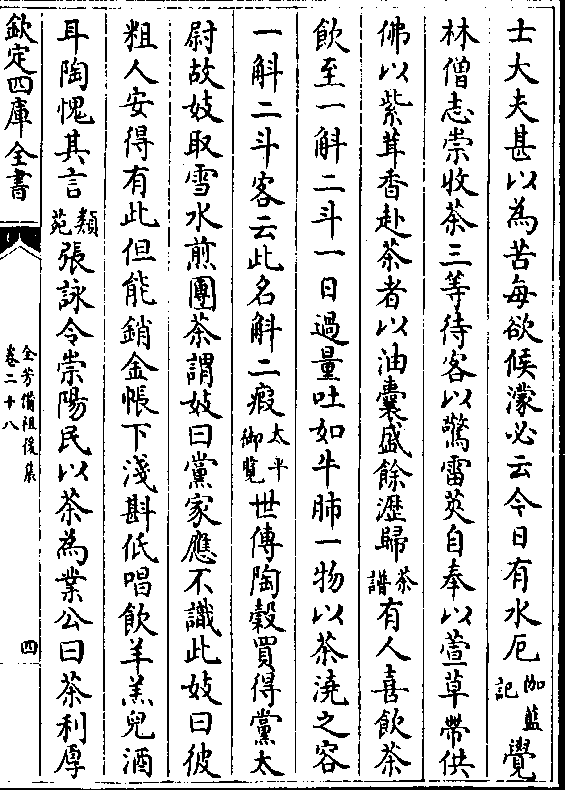 士大夫甚以為苦每欲候濛必云今日有水厄伽藍記覺
林僧志崇收茶三等待客以驚雷莢自奉以萱草帶供
佛以紫茸香赴茶者以油囊盛餘瀝歸茶譜有人喜飲茶
飲至一斛二斗一日過量吐如牛肺一物以茶澆之容
一斛二斗客云此名斛二瘕太平御覽世傳陶穀買得黨太
尉故妓取雪水煎團茶謂妓曰黨家應不識此妓曰彼
粗人安得有此但能銷金帳下淺斟低唱飲羊羔兒酒
耳陶愧其言類苑張詠令崇陽民以茶為業公曰茶利厚
欽定四庫全書
全芳備祖後集
卷二十八
四